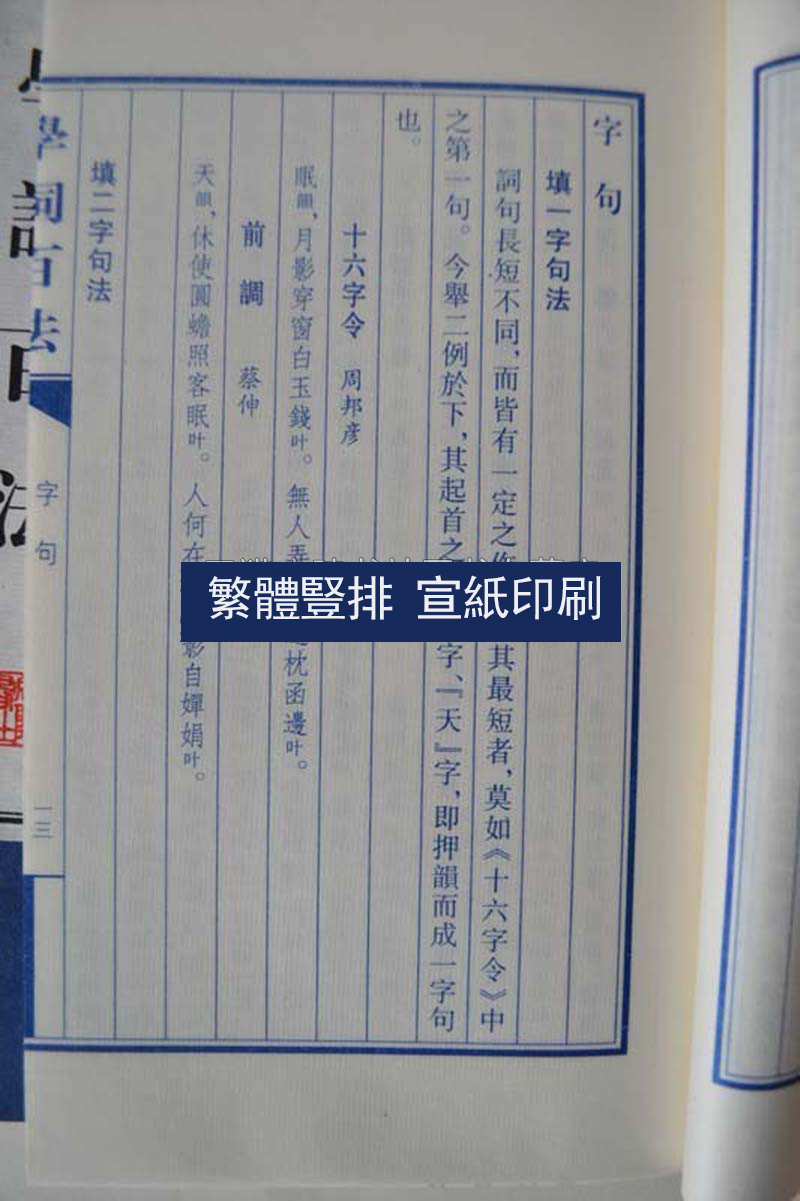 字句
填一字句法
詞句長短不同，而皆有一定之
其最短者，莫如《十六字令》中
之第一句。今舉二例於下，其起首之
字、『天』字，即押韻而成一字句
也。
十六字令 周邦彦
眠韻，月影穿窗白玉錢叶。無人弄
枕函邊叶。
前調 蔡伸
天韻，休使圓蟾照客眠叶。人何在
影自嬋娟叶。
填二字句法
學詞百法
字句
一三
繁體豎排 宣紙印刷